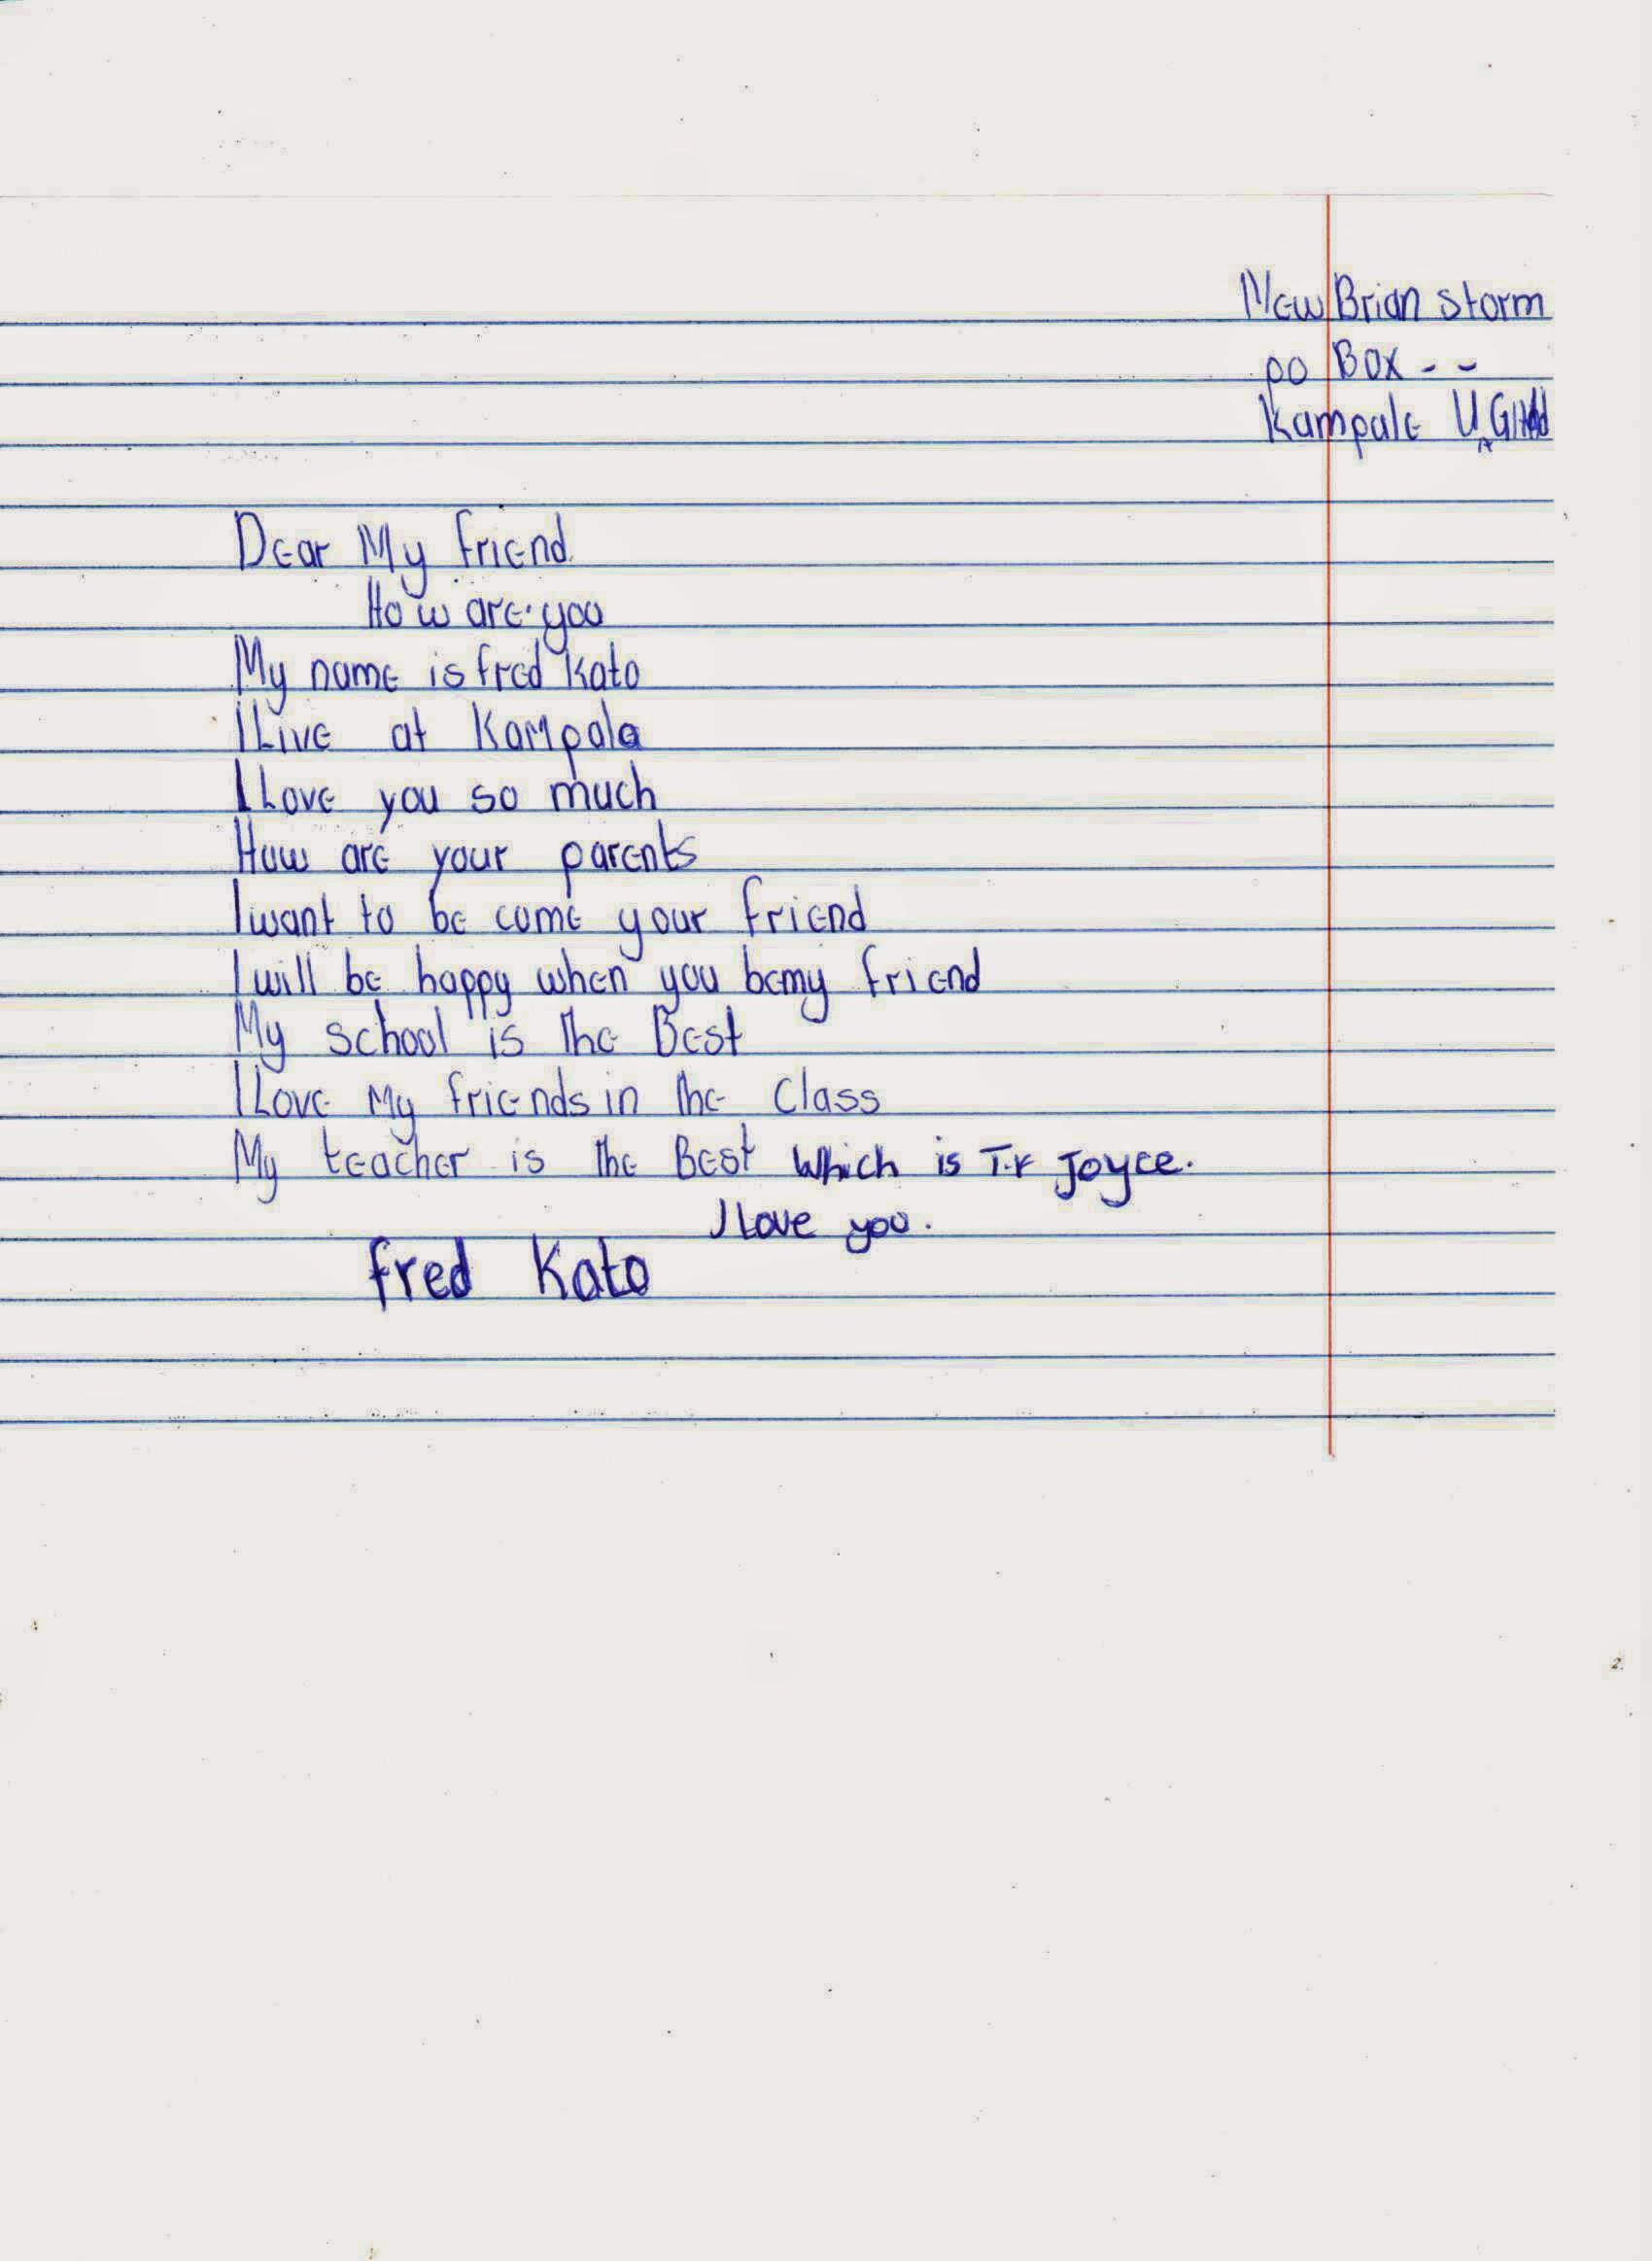 New Brian storm
po Box - -
Kampala
Dear My friend
How are you
My name is fred Kato
I Live at Kampala
I Love you so much
How are your parents
I want to be come your friend
I will be happy when you be my friend
My school is the Best
I Love My friends in the Class
My teacher is the Best which is T.r Joyce.
I Love you.
fred Kato